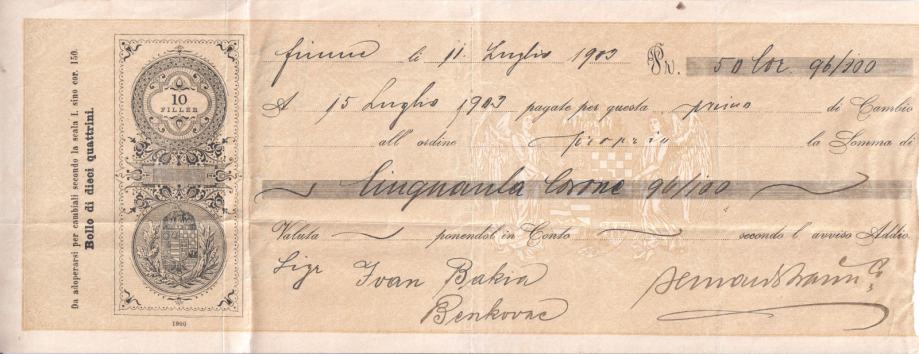 Da adoperarsi per cambiali secondo la scala I. sino cor. 150.
Bollo di dieci quattrini.
10
FILLER
1900
Fiume li 11 Luglio 1903 Pr. 50 Cor 96/100
A 15 Luglio 1903 pagate per questa prima di Cambio
all' ordine proprio la Somma di
Cinquanta Corone 96/100
Valuta ponendol in Conto secondo l avviso Addio
Sigr Ivan Bakia
Benkovac